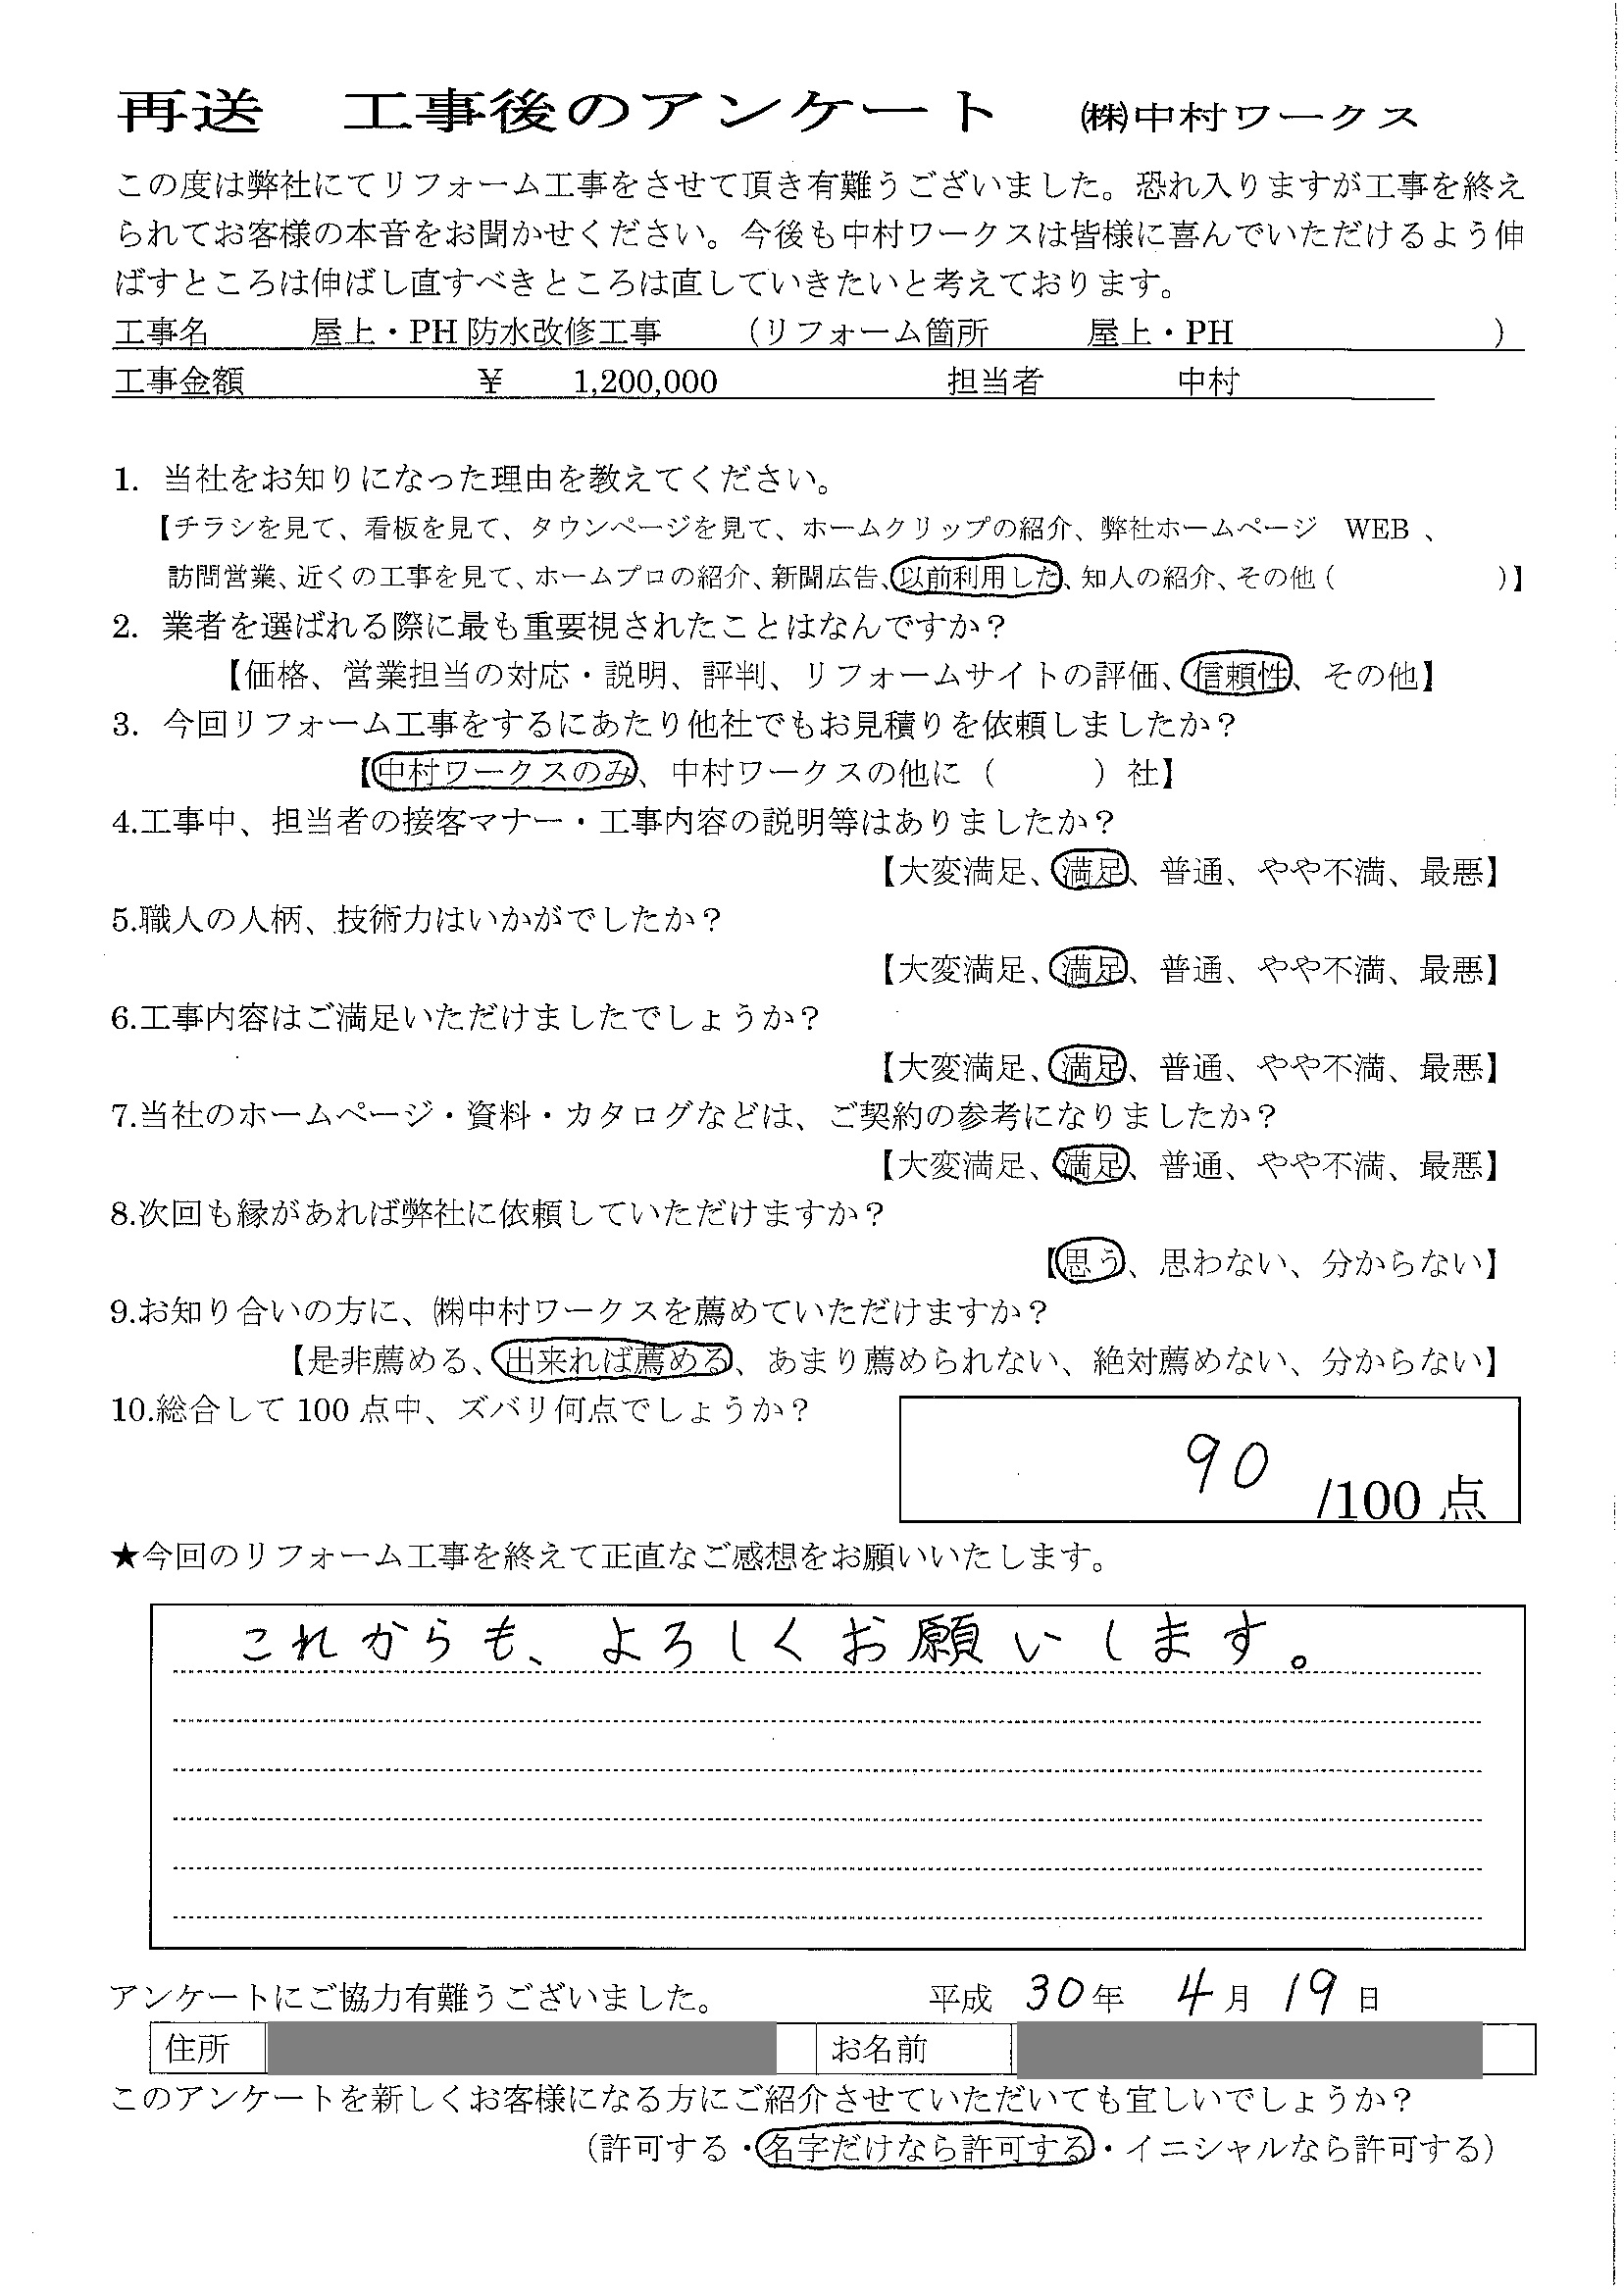 再送　工事後のアンケート　㈱中村ワークス
この度は弊社にてリフォーム工事をさせて頂き有難うございました。恐れ入りますが工事を終え
られてお客様の本音をお聞かせください。今後も中村ワークスは皆様に喜んでいただけるよう伸
ばすところは伸ばし直すべきところは直していきたいと考えております。
工事名　屋上・PH 防水改修工事　（リフォーム箇所　屋上・PH　）
工事金額　￥　1,200,000　担当者　中村
1. 当社をお知りになった理由を教えてください。
【チラシを見て、看板を見て、タウンページを見て、ホームクリップの紹介、弊社ホームページ　WEB 、
訪問営業、近くの工事を見て、ホームプロの紹介、新聞広告、以前利用した、知人の紹介、その他（　）】
2. 業者を選ばれる際に最も重要視されたことはなんですか？
【価格、営業担当の対応・説明、評判、リフォームサイトの評価、信頼性、その他】
3. 今回リフォーム工事をするにあたり他社でもお見積りを依頼しましたか？
【中村ワークスのみ、中村ワークスの他に（　）社】
4.工事中、担当者の接客マナー・工事内容の説明等はありましたか？
【大変満足、満足、普通、やや不満、最悪】
5.職人の人柄、技術力はいかがでしたか？
【大変満足、満足、普通、やや不満、最悪】
6.工事内容はご満足いただけましたでしょうか？
【大変満足、満足、普通、やや不満、最悪】
7.当社のホームページ・資料・カタログなどは、ご契約の参考になりましたか？
【大変満足、満足、普通、やや不満、最悪】
8.次回も縁があれば弊社に依頼していただけますか？
【思う、思わない、分からない】
9.お知り合いの方に、㈱中村ワークスを薦めていただけますか？
【是非薦める、出来れば薦める、あまり薦められない、絶対薦めない、分からない】
10.総合して 100 点中、ズバリ何点でしょうか？
90 /100 点
★今回のリフォーム工事を終えて正直なご感想をお願いいたします。
これからも、よろしくお願いします。
アンケートにご協力有難うございました。　平成 30年 4月 19日
住所　お名前
このアンケートを新しくお客様になる方にご紹介させていただいても宜しいでしょうか？
（許可する・名字だけなら許可する・イニシャルなら許可する）